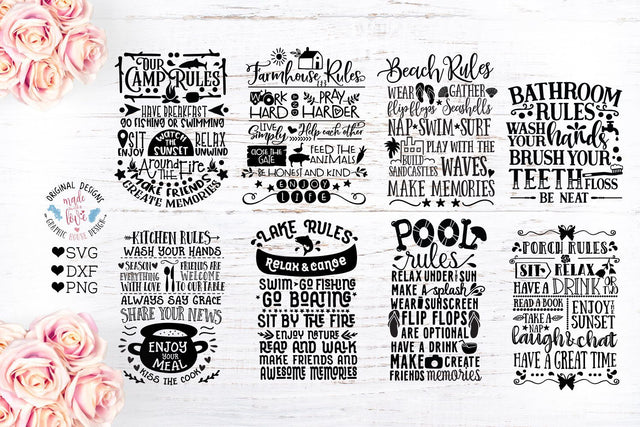 OUR
CAMP RULES
HAVE BREAKFAST
GO FISHING OR SWIMMING
SIT
ENJOY
WATCH
THE
SUNSET
RELAX
UNWIND
Around the
FIRE
MAKE FRIENDS
CREATE MEMORIES
Farmhouse Rules
WORK
HARD
PRAY
HARDER
LIVE
Simply
Help each other
CLOSE THE
GATE
FEED THE
ANIMALS
BE HONEST AND KIND
ENJOY
LIFE
Beach Rules
WEAR
flip flops
GATHER
Seashells
NAP SWIM SURF
BUILD
SANDCASTLES
PLAY WITH THE
WAVES
MAKE MEMORIES
BATHROOM
RULES
WASH
YOUR hands
BRUSH YOUR
TEETH FLOSS
BE NEAT
ORIGINAL DESIGNS
made
with
love
GRAPHIC HOUSE DESIGN
SVG
DXF
PNG
KITCHEN RULES
WASH YOUR HANDS
SEASON
EVERYTHING
WITH LOVE
FRIENDS ARE
WELCOME
TO OUR TABLE
ALWAYS SAY GRACE
SHARE YOUR NEWS
ENJOY
YOUR
MEAL
KISS THE COOK
LAKE RULES
RELAX & CANOE
SWIM GO FISHING
GO BOATING
SIT BY THE FIRE
ENJOY NATURE
READ AND WALK
MAKE FRIENDS AND
AWESOME MEMORIES
POOL
rules
RELAX UNDER SUN
MAKE A splash
WEAR SUNSCREEN
FLIP FLOPS
ARE OPTIONAL
HAVE A DRINK
MAKE CREATE
FRIENDS memories
PORCH RULES
SIT RELAX
HAVE A DRINK OR
READ A BOOK
TAKE A
NAP
ENJOY
SUNSET
laugh & chat
HAVE A GREAT TIME